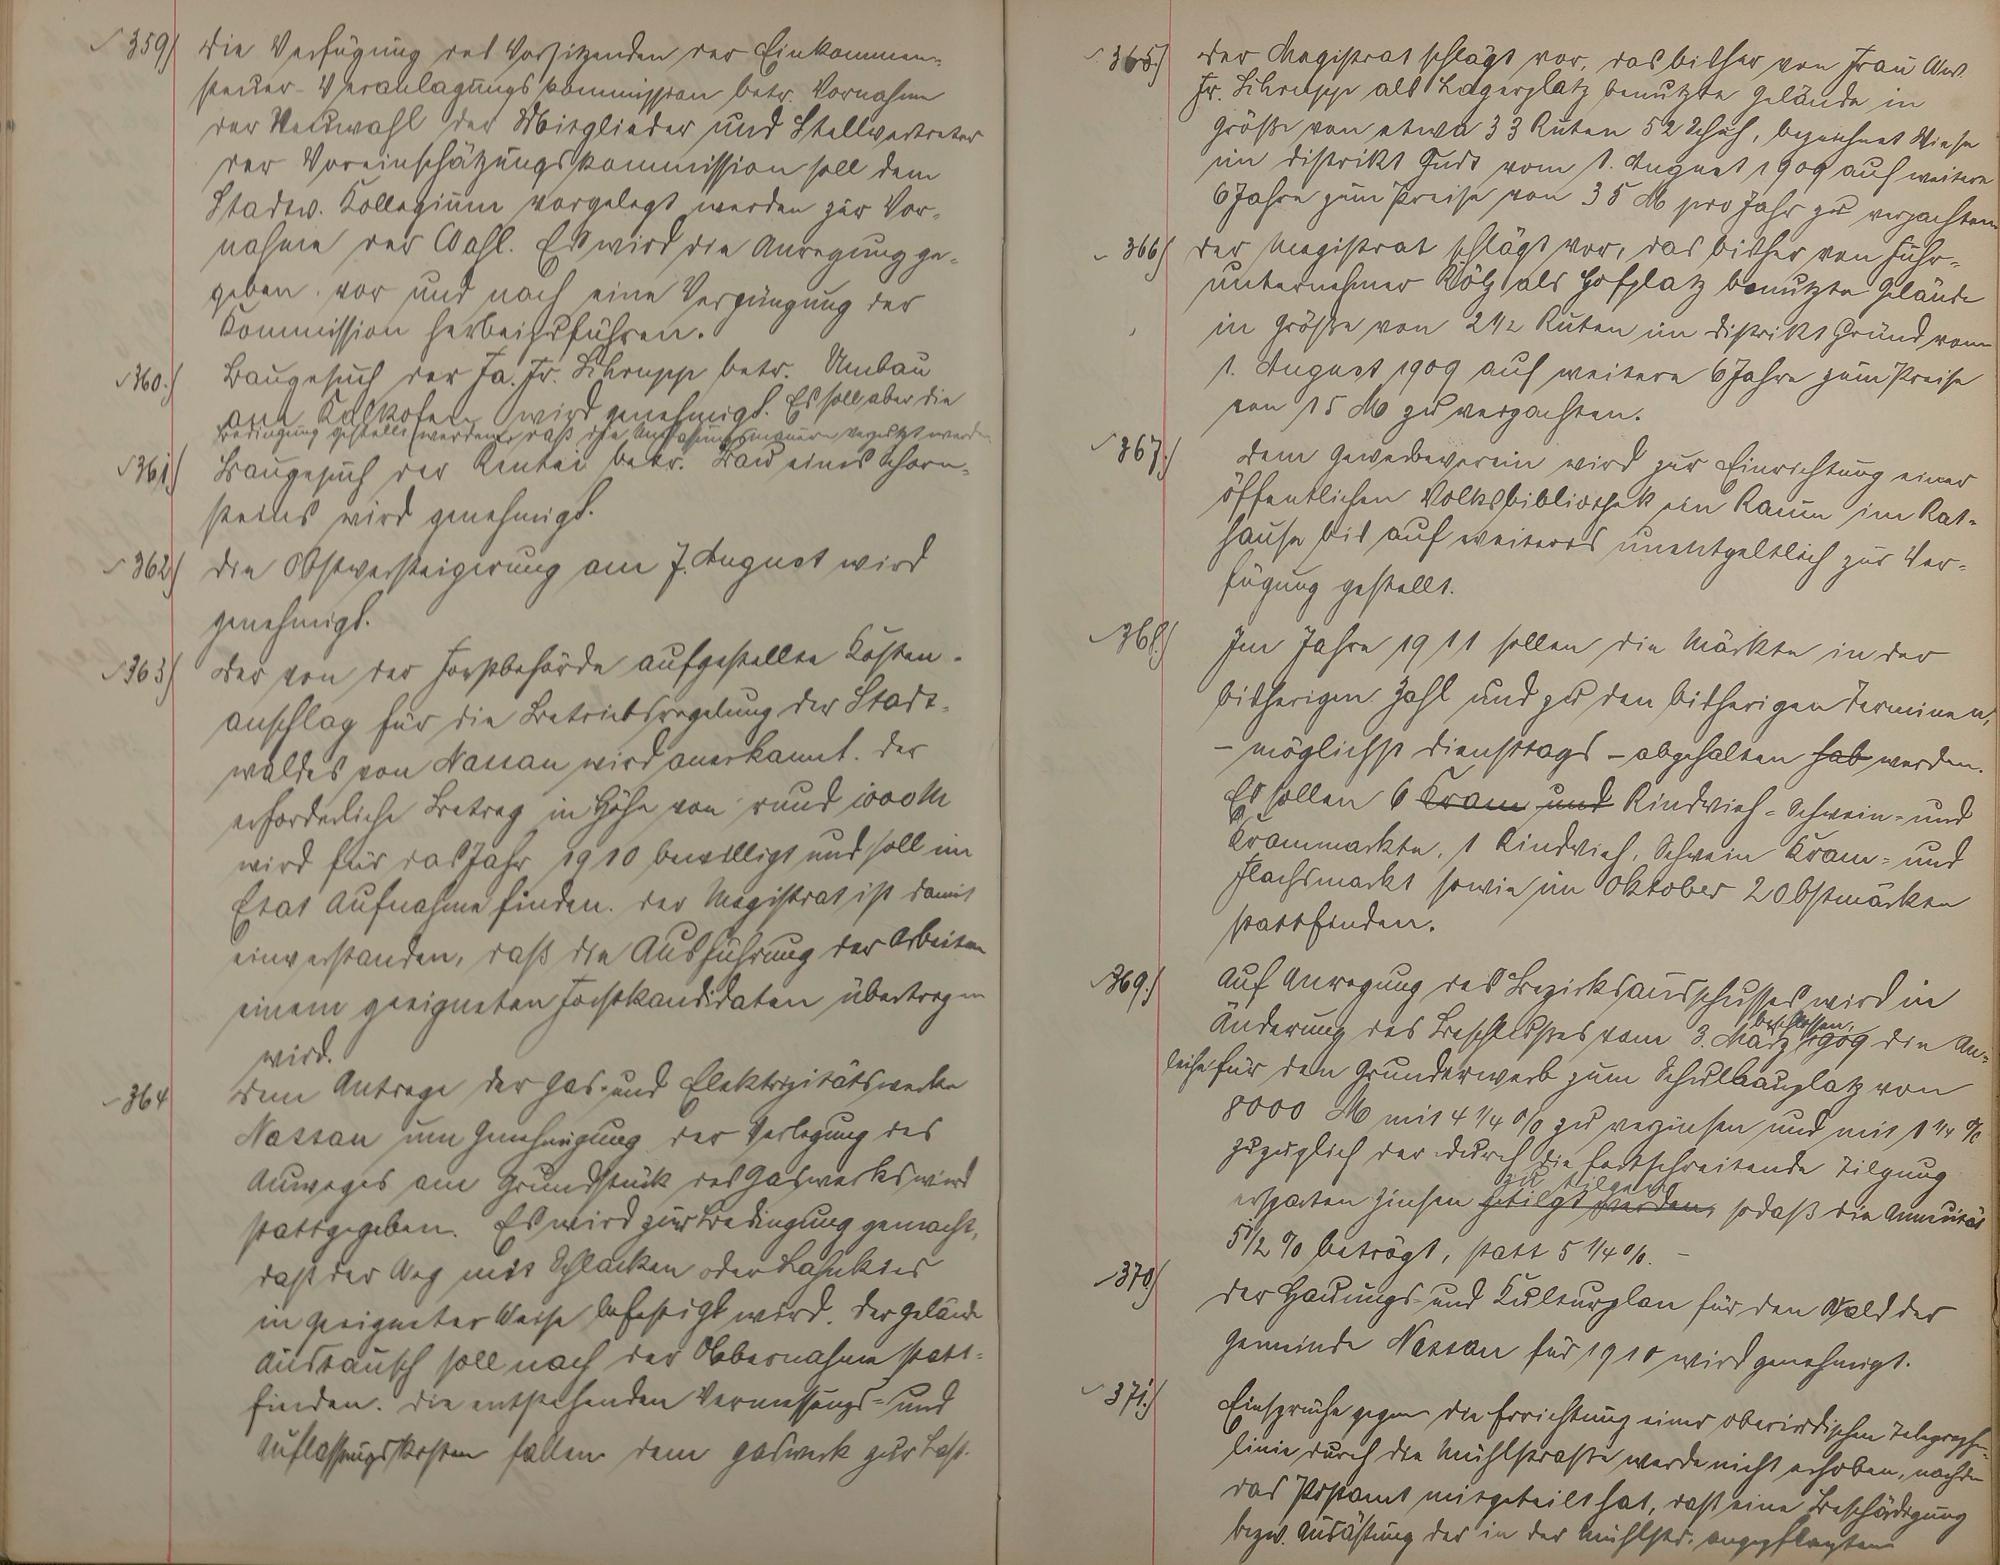 359) Die Verfügung des Vorsitzenden der Einkommen-
steuer-Veranlagungskommission betr. Vornahme
der Neuwahl der Mitglieder und Stellvertreter
der Voreinschätzungskommission soll dem
Stadtv. Kollegium vorgelegt werden zur Vor-
nahme der Wahl. Es wird die Anregung ge-
geben, vor und nach eine Verjüngung der
Kommission herbeizuführen.
360.) Baugesuch der Fa. Fr. Schrupp betr. Umbau
am Kalkofen wird genehmigt. Es soll aber die
Bedingung gestellt werden, daß die Umfassungsmauern verputzt werden
361) Baugesuch der Rentei betr. Bau eines Schorn-
steins wird genehmigt.
362) Die Obstversteigerung am 7. August wird
genehmigt.
363) Der von der Forstbehörde aufgestellte Kosten-
anschlag für die Betriebsregelung der Stadt-
waldes von Nassau wird anerkannt. Der
erforderliche Betrag in Höhe von rund 1000 M
wird für das Jahr 1910 bewilligt und soll im
Etat Aufnahme finden. Der Magistrat ist damit
einverstanden, daß die Ausführung der Arbeiten
einem geeigneten Forstkandidaten übertragen
wird.
364 Dem Antrage der Gas- und Elektrizitätswerke
Nassau um Genehmigung der Verlegung des
Auweges am Grundstück des Gaswerks wird
stattgegeben. Es wird zur Bedingung gemacht,
daß der Weg mit Schlacken oder Lahnkies
in geeigneter Weise befestigt wird. Der Gelände
austausch soll nach der Übernahme statt-
finden. Die entstehenden Vermessungs- und
Auflassungskosten fallen dem Gaswerk zur Last.
365.) Der Magistrat schlägt vor, das bisher von Frau Ww.
Fr. Schrupp als Lagerplatz benutzte Gelände in
Größe von etwa 33 Ruten 52 Schuh, bezeichnet Wiese
im Distrikt vom 1. August 1909 auf weitere
6 Jahre zum Preise von 35 M pro Jahr zu verpachten
366) Der Magistrat schlägt vor, das bisher von Fuhr-
unternehmer Kölz als Hofplatz benutzte Gelände
in Größe von 2 1/2 Ruten im Distrikt Grund vom
1. August 1909 auf weitere 6 Jahre zum Preise
von 15 M zu verpachten.
367.) Dem Gewerbeverein wird zur Einrichtung einer
öffentlichen Volksbibliothek ein Raum im Rat-
hause bis auf weiteres unentgeltlich zur Ver-
fügung gestellt.
368.) Im Jahre 1911 sollen die Märkte in der
bisherigen Zahl und zu den bisherigen Terminen,
– möglichst Dienstags – abgehalten hab werden.
Es sollen 6 Kram und Rindvieh- Schwein- und
Krammarkte, 1 Rindvieh, Schwein Kram- und
Flachsmarkt sowie im Oktober 2 Obstmärkte
stattfinden.
369.) Auf Anregung des Bezirksausschusses wird in
Änderung des Beschlußes vom 3. März 1909 beschlossen, die An-
leihe für den Grunderwerb zum Schulbauplatz von
8000 M mit 4 1/4 % zu verzinsen und mit 1 1/4 %
zuzüglich der durch die fortschreitende Tilgung
zu tilgen
ersparten Zinsen getilgt werden, sodaß die Annuität
5 1/2 % beträgt, statt 5 1/4 %. –
370) Der Hauungs- und Kulturplan für den Wald der
Gemeinde Nassau für 1910 wird genehmigt.
371.) Einsprüche gegen die Errichtung einer oberirdischen Telegraphen-
linie durch die Mühlstraße werde nicht erhoben, nachdem
das Postamt mitgeteilt hat, daß eine Beschädigung
bezw. Ausästung der in der Mühlstr. angepflanzten